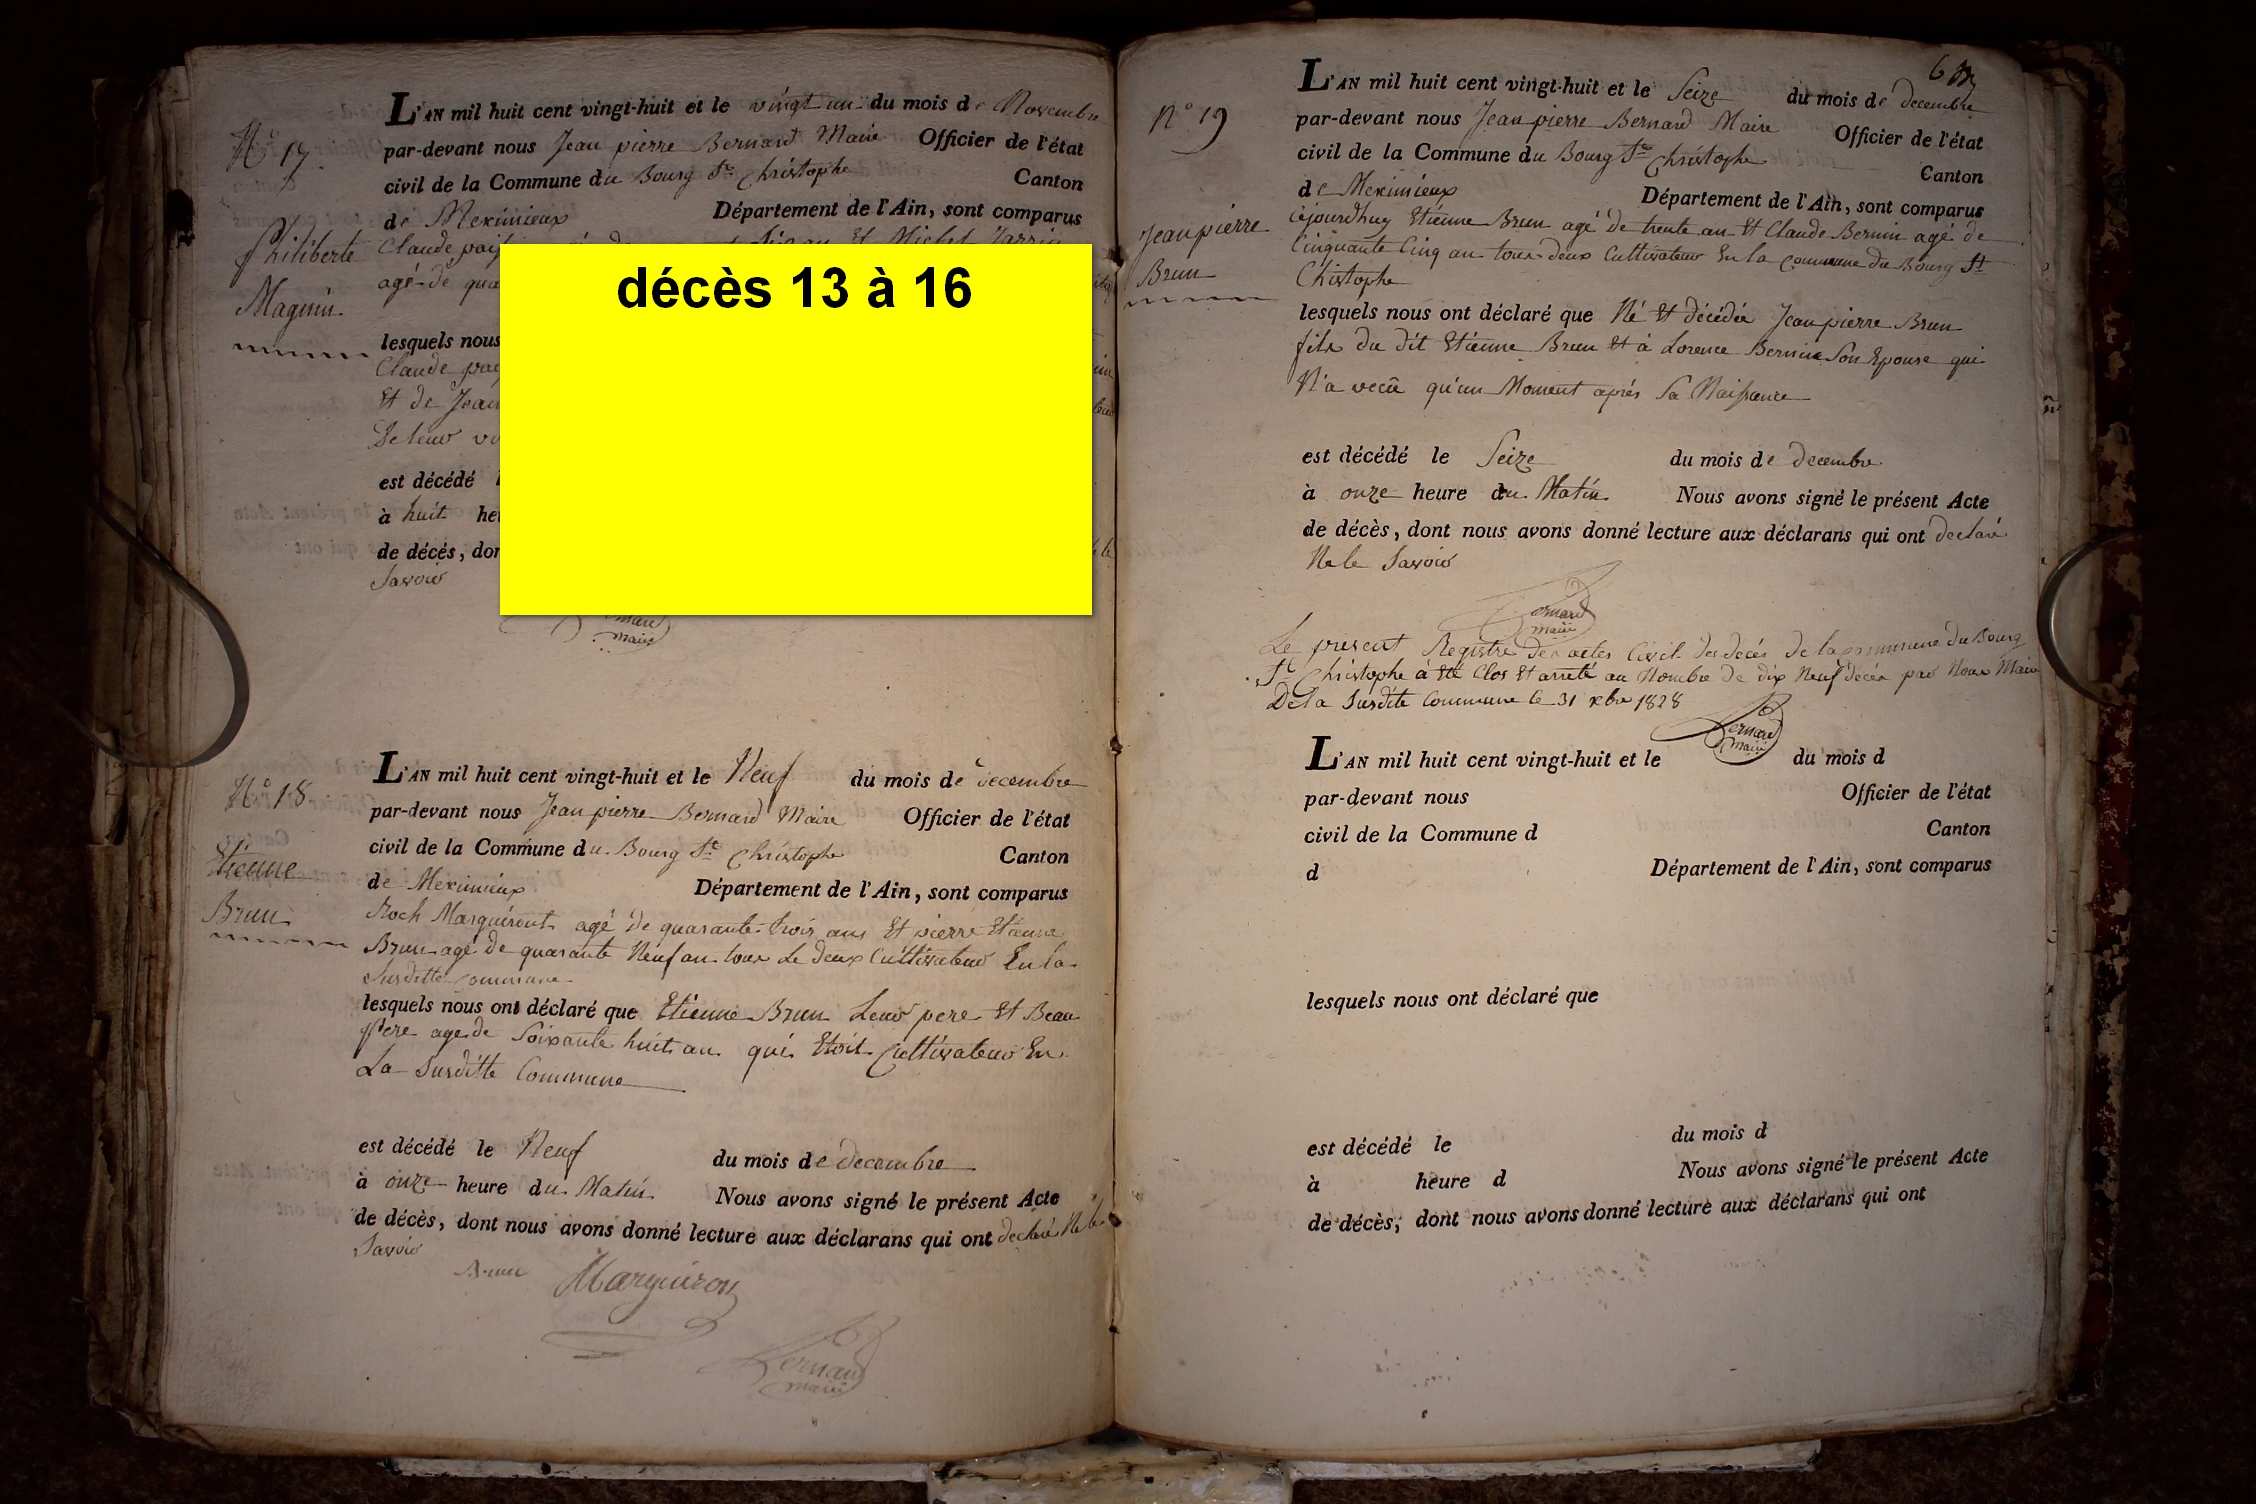 N° 17
Philiberte
Magnin
L'AN mil huit cent vingt-huit et le vingt un du mois de Novembre
par-devant nous Jean pierre Bernard Maire Officier de l'état
civil de la Commune du Bourg St Christophe Canton
de Meximieux Département de l'Ain, sont comparus
Claude
agé de
lesquels nous
Claude
Et de Jean
De leur
est décédé
à huit
de décés,
Savoir
maire
décès 13 à 16
N° 18
Etienne
Brun
L'AN mil huit cent vingt-huit et le Neuf du mois de decembre
par-devant nous Jean pierre Bernard Maire Officier de l'état
civil de la Commune du Bourg St Christophe Canton
de Meximieux Département de l'Ain, sont comparus
Roch Marguiront agé de quarante trois ans Et pierre Etienne
Brun agé de quarante Neuf an tous Le deux Cultivateur En la
Surditte commune
lesquels nous ont déclaré que Etienne Brun Leur pere Et Beau
pere age de Soixante huit an qui Etoit Cultivateur En
La Surditte Commune
est décédé le Neuf du mois de decembre
à onze heure du Matin Nous avons signé le présent Acte
de décès, dont nous avons donné lecture aux déclarans qui ont declaré Ne le
Savoir
Brun Marguiron
Bernard
maire
6
N° 19
Jean pierre
Brun
L'AN mil huit cent vingt-huit et le Seize du mois de decembre
par-devant nous Jean pierre Bernard Maire Officier de l'état
civil de la Commune du Bourg St Christophe Canton
de Meximieux Département de l'Ain, sont comparus
cejourdhuy Etienne Brun agé de trente an Et Claude Bernin agé de
Cinquante Cinq an tous deux Cultivateur En la Commune du Bourg St
Christophe
lesquels nous ont déclaré que Né Et décédée Jean pierre Brun
fils du dit Etienne Brun Et à Lorence Bernin Son Epouse qui
N'a vecû qu'un Moment aprés Sa Naissance
est décédé le Seize du mois de decembre
à onze heure du Matin Nous avons signé le présent Acte
de décès, dont nous avons donné lecture aux déclarans qui ont declaré
Ne le Savoir
Bernard
maire
Le present Registre des actes Civil des decés de la commune du Bourg
St Christophe à Eté Clos Et arreté au Nombre de dix Neuf décès par Nous Maire
De la Surdite Commune le 31 xbre 1828
Bernard
maire
L'AN mil huit cent vingt-huit et le du mois d
par-devant nous Officier de l'état
civil de la Commune d Canton
d Département de l'Ain, sont comparus
lesquels nous ont déclaré que
est décédé le du mois d
à heure d Nous avons signé le présent Acte
de décès, dont nous avons donné lecture aux déclarans qui ont